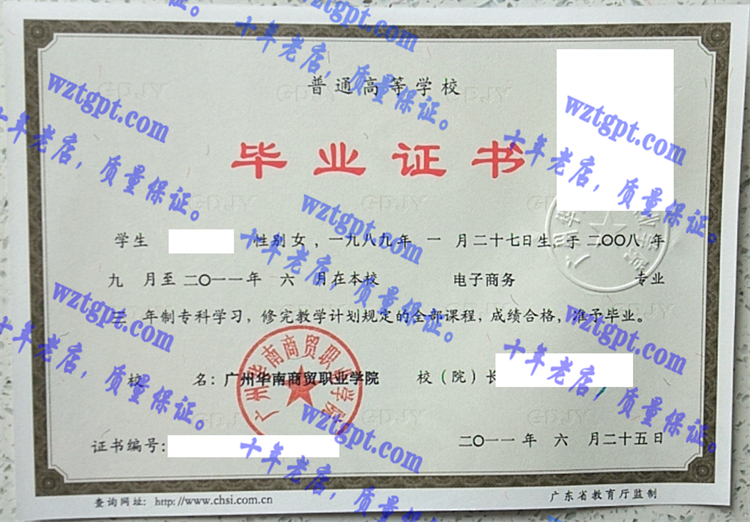 普通高等学校
毕业证书
学生 性别女，一九八九年 一 月二十七日生，于二〇〇八 年
九 月至二〇一一年 六 月在本校 电子商务 专业
三 年制专科学习，修完教学计划规定的全部课程，成绩合格，准予毕业。
校 名：广州华南商贸职业学院 校（院）长
证书编号： 二〇一一 年 六 月二十五日
查询网址：http://www.chsi.com.cn 广东省教育厅监制
广州华南商贸职业学院
GDJY
wztgpt.com
十年老店，质量保证。
wztgpt.com
十年老店，质量保证。
wztgpt.com
十年老店，质量保证。
wztgpt.com
十年老店，质量保证。
wztgpt.com
十年老店，质量保证。
wztgpt.com
十年老店，质量保证。
wztgpt.com
十年老店，质量保证。
wztgpt.com
十年老店，质量保证。
wztgpt.com
十年老店，质量保证。